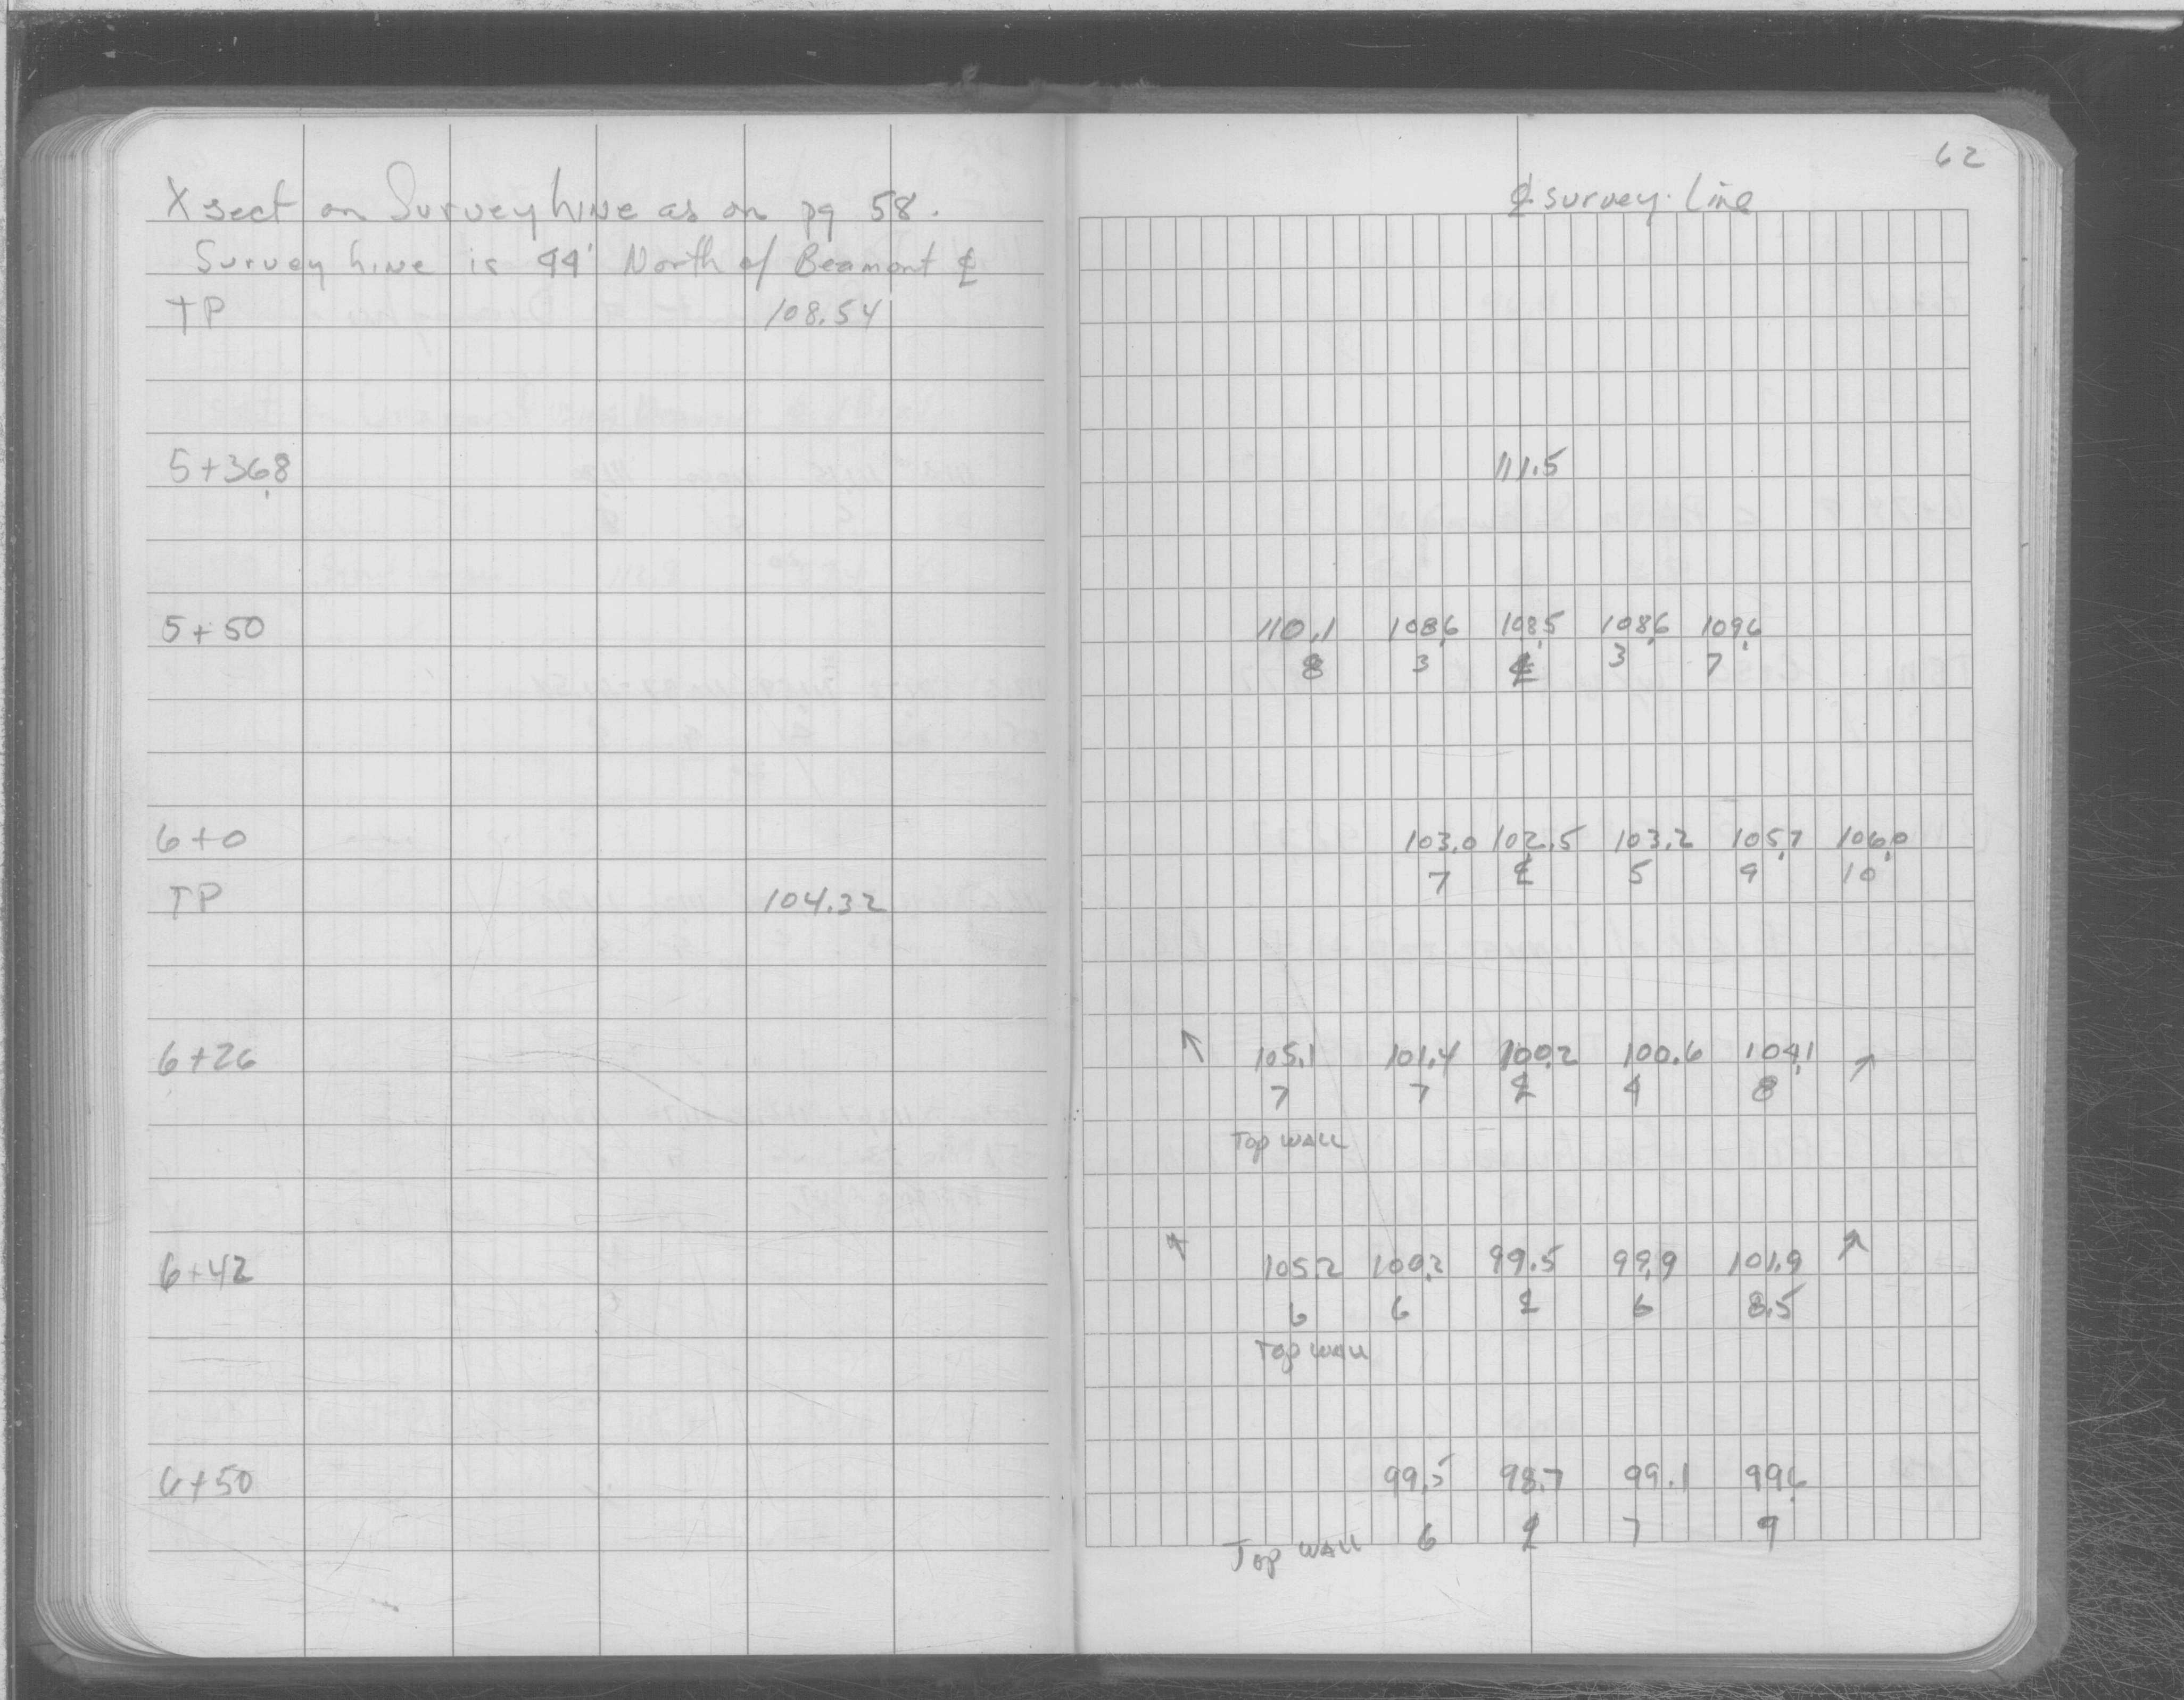 X sect on Survey Line as on pg 58.
Survey Line is 44' North of Beamont ℄
TP 108.54
5+36.8
5+50
6+0
TP 104.32
6+26
6+42
6+50
62
℄ survey Line
111.5
110.1 108.6 108.5 108.6 109.6
8 3 ℄ 3 7
103.0 102.5 103.2 105.7 106.0
7 ℄ 5 9 10
↖ 105.1 101.4 100.2 100.6 104.1 ↗
7 7 ℄ 4 8
Top WALL
↖ 105.2 100.2 99.5 99.9 101.9 ↗
6 6 ℄ 6 8.5
Top WALL
99.5 98.7 99.1 99.6
6 ℄ 7 9
Top WALL